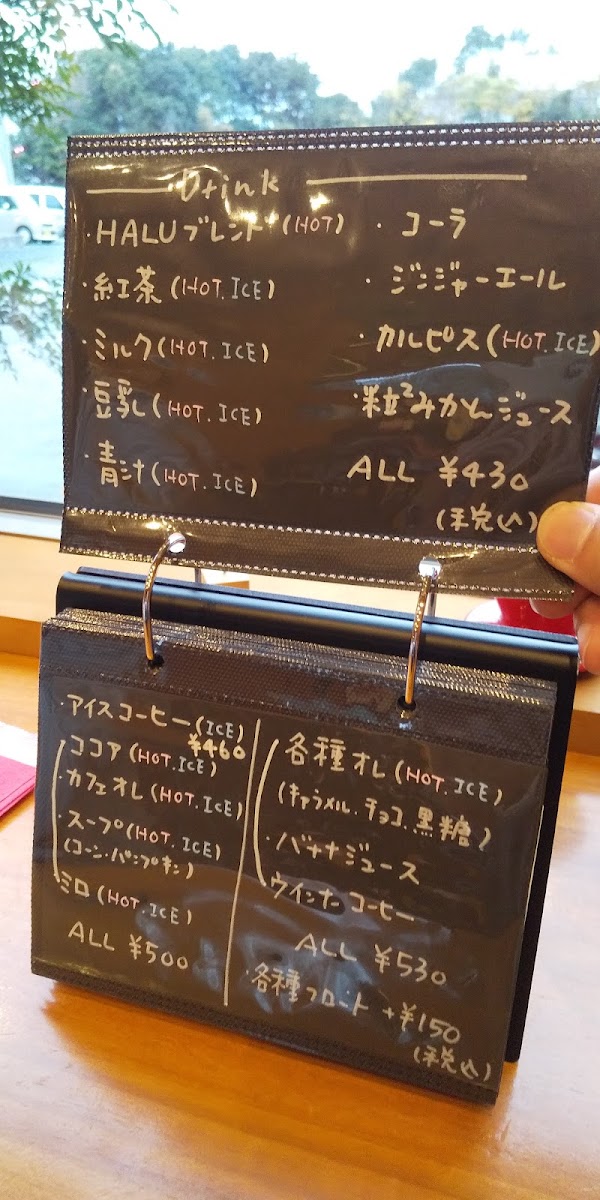 Drink
・HALUブレンド(HOT)
・紅茶(HOT.ICE)
・ミルク(HOT.ICE)
・豆乳(HOT.ICE)
・青汁(HOT.ICE)
・コーラ
・ジンジャーエール
・カルピス(HOT.ICE)
・粒²みかんジュース
ALL ¥430
(税込)
・アイスコーヒー(ICE)
¥460
ココア(HOT.ICE)
・カフェオレ(HOT.ICE)
・スープ(HOT.ICE)
(コーン・パンプキン)
ミロ(HOT.ICE)
ALL ¥500
各種オレ(HOT.ICE)
(キャラメル.チョコ.黒糖)
・バナナジュース
ウインナーコーヒー
ALL ¥530
・各種フロート +¥150
(税込)